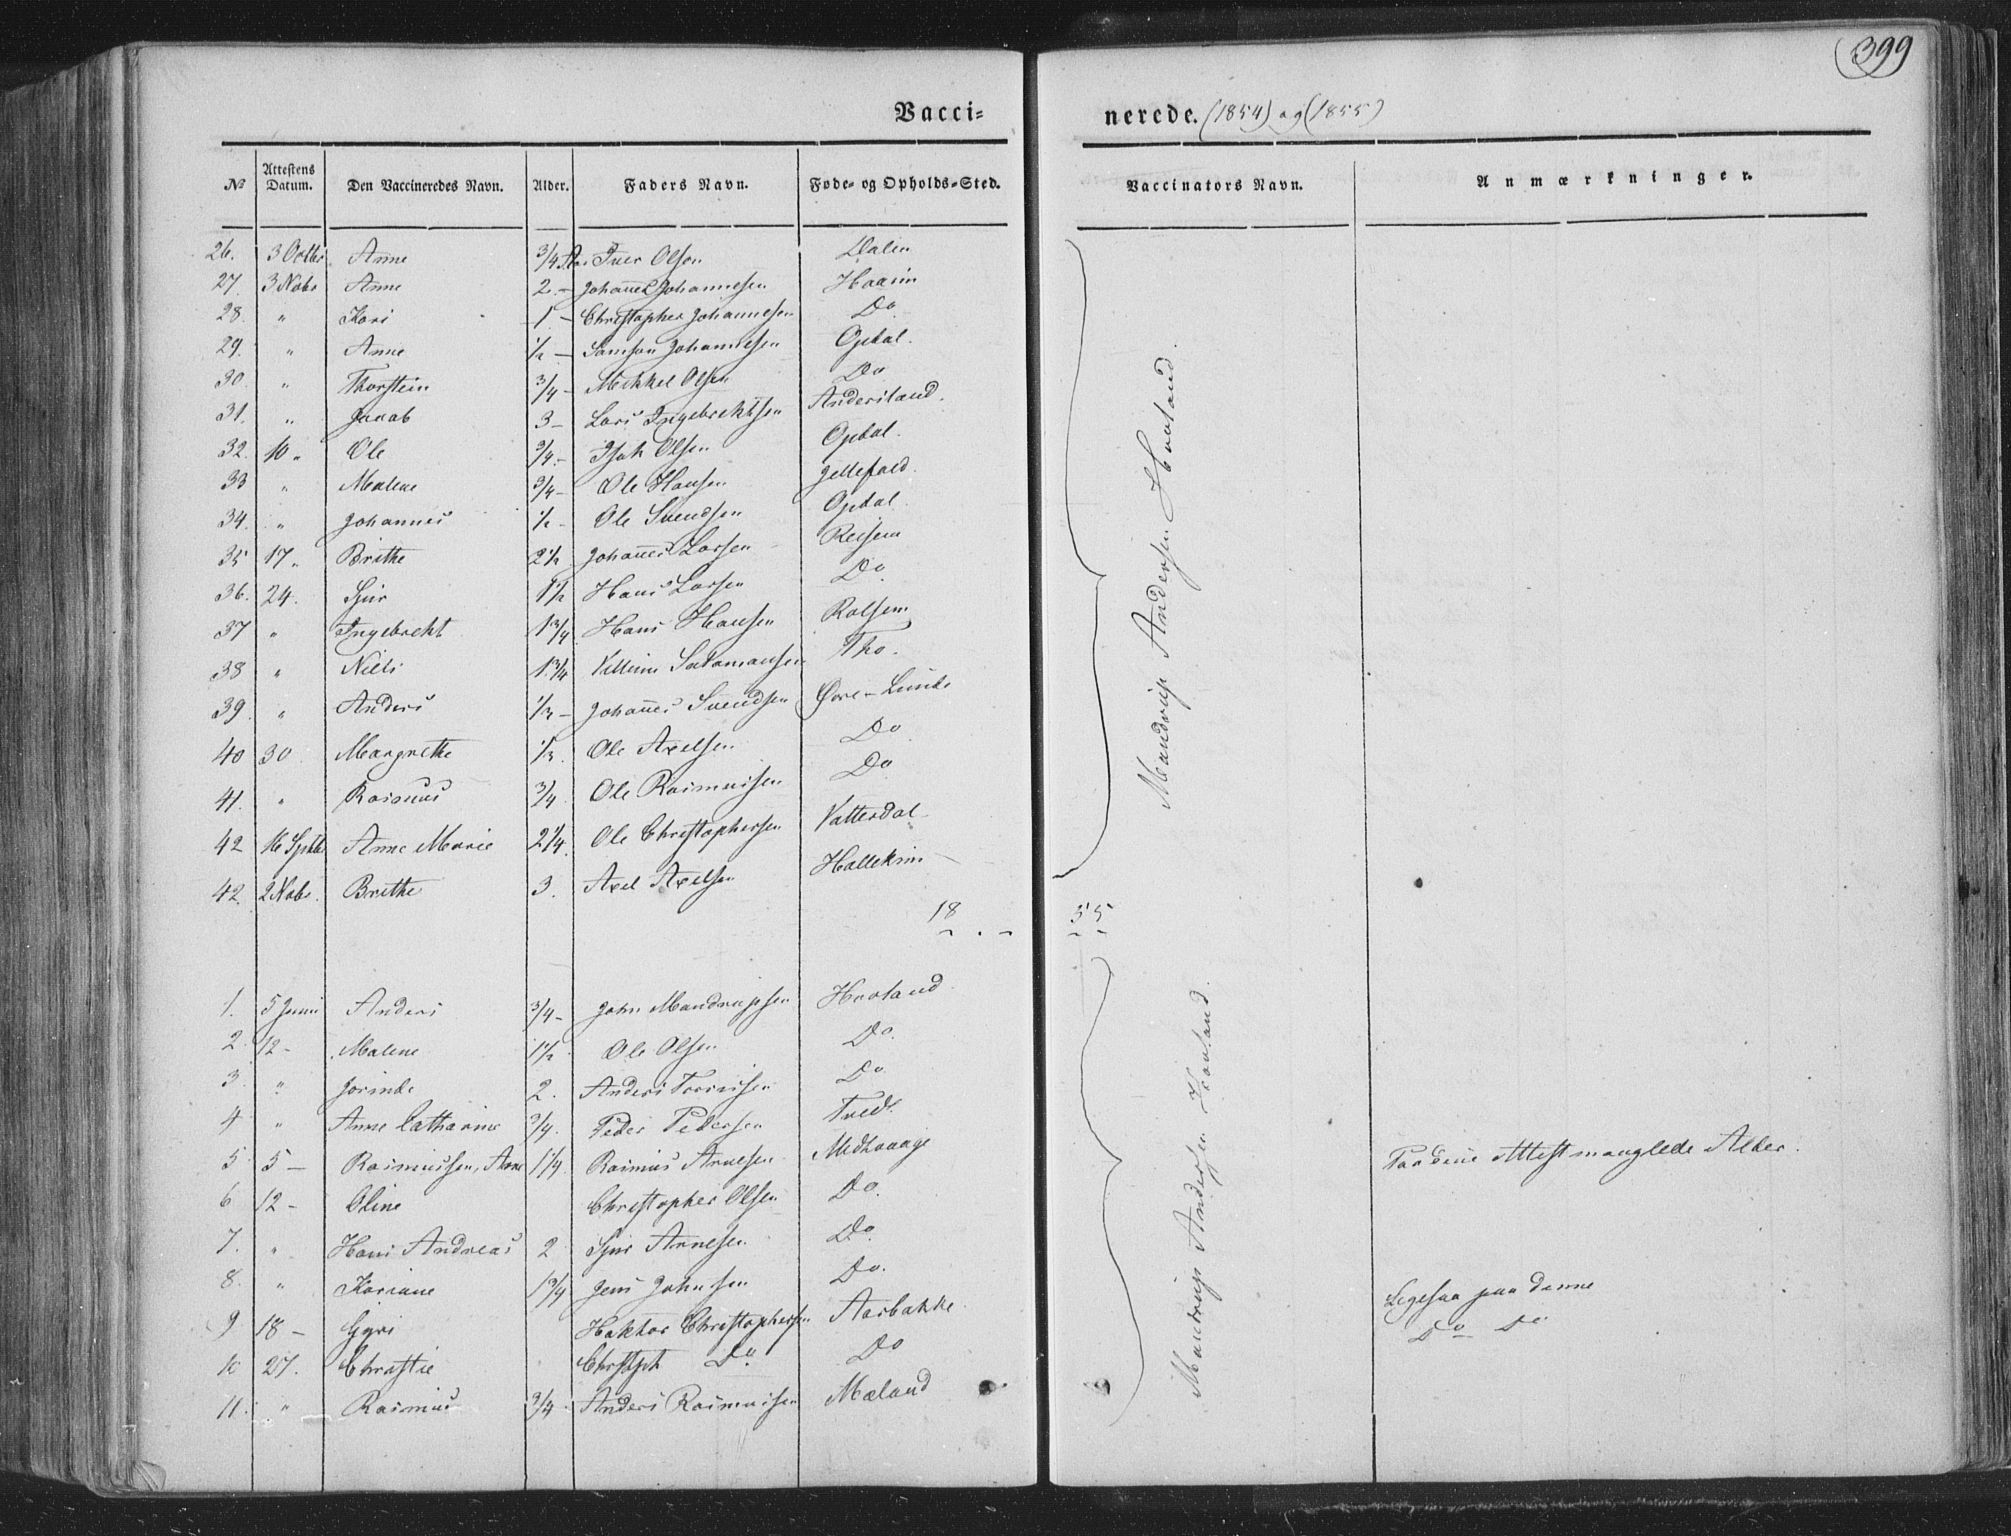 399
Vacci- nerede. (1854) og (1855)
№ Attestens Datum. Den Vaccineredes Navn. Alder. Faders Navn. Føde- og Opholds-Sted. Vaccinators Navn. Anmærkninger.
26. 3 Octbr Anne 3/4 Aar Iver Olson Dalen
27. 3 Nobr Anne 2 - Johannes Johannesen Haaeim
28. " Kari 1 - Christopher Johannesen Do
29. " Anne 1/2 - Samson Johannesen Opdal.
30. " Thorstein 3/4 - Mikkel Olsen Do
31. " Jacob 3 - Lars Ingebrektsen Andersland.
32. 10 " Ole 3/4 - Isak Olsen Opdal.
33 " Malene 3/4 - Ole Hansen
34. " Johannes 1/2 - Ole Svendsen Opdal
35 17 " Brithe 2 1/2 Johannes Larsen Reisem
36. 24. Sjur 1 1/2 Hans Larsen Do
37 " Ingebrecht 1 3/4 Hans Hansen Rolsem
38 " Niels 1 3/4 Villum Salamonsen Tho.
39. " Anders 1/3 - Johannes Svendsen Øvre-Lunde
40 30 Margrethe 1/3. Ole Axelsen Do
41. " Rasmus 3/4 Ole Rasmussen Do
42 16 Septbr Anne Marie 2 1/4. Ole Christophersen Vatterdal
42. 2 Nobr. Brithe 3. Axel Axelsen
Mandrup Andersen Hovland.
18 55
1. 5 Juni Anders 3/4 - John Mandrupsen Hovland
2. 12 - Malene 1 1/2 Ole Olsen Do.
3. " Jorinde 2. Anders Do
4 " Anne Catharine 3/4. Peder Pedersen Tvedt.
5 5 - Rasmussen, Arne 1 1/4. Rasmus Arnesen Medhaauge Paa denne Attest manglede Alder.
6 12 - Oline Christopher Olsen Do.
7. " Hans Andreas 2 Sjur Arnesen Do.
8. " Kariane 1 3/4 Jens Johnsen Do. Ligesaa paa denne
9 18 - Gyri Haktor Christophersen Aarbakke Do Do
10 27. Christie Christoph Do Do
11. " Rasmus 3/4 Anders Rasmussen Mæland
Mandrup Andersen Hovland.